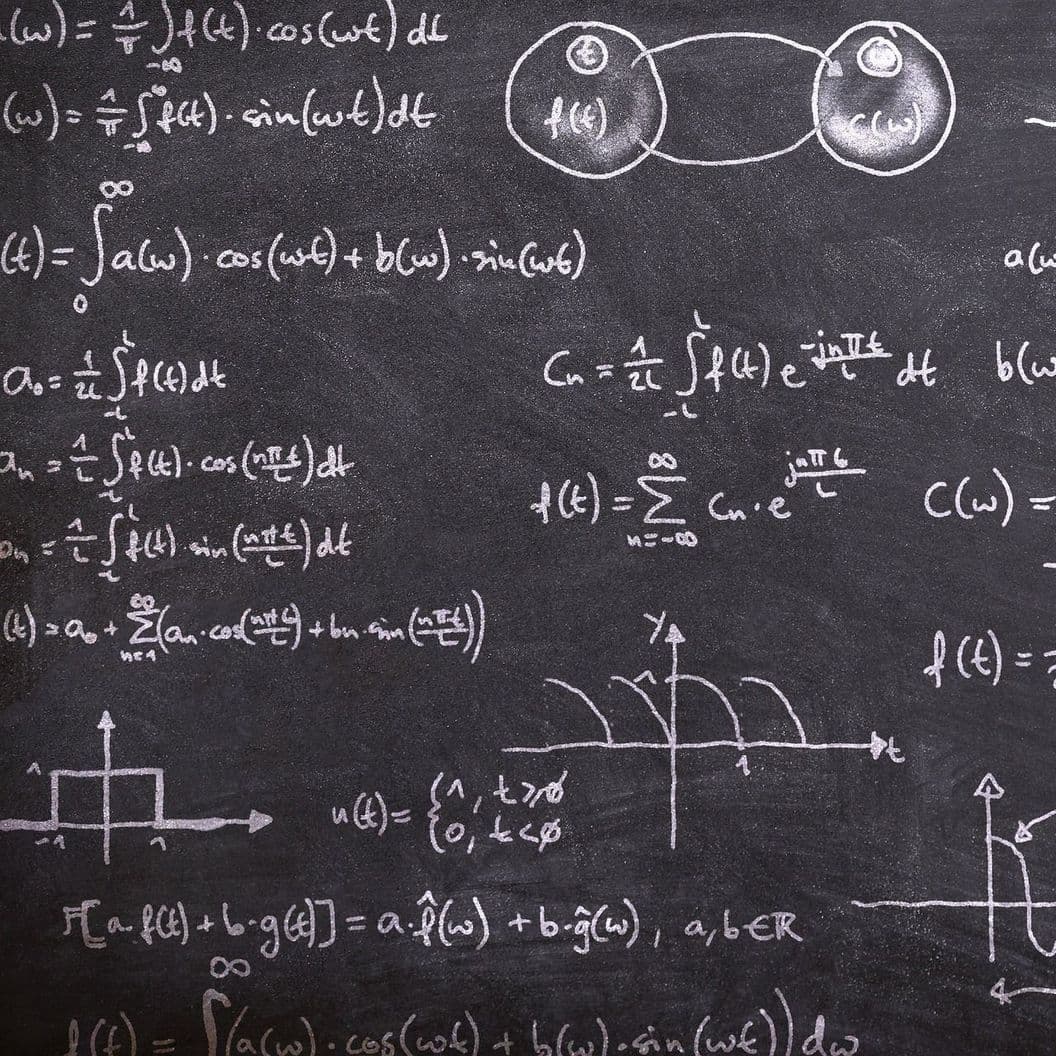 (ω) = 1/π ∫_{-∞} f(t)·cos(ωt) dt
(ω) = 1/π ∫_{-∞}^{∞} f(t)·sin(ωt) dt
t
f(t)
c(ω)
(t) = ∫_0^∞ a(ω)·cos(ωt) + b(ω)·sin(ωt)
a(ω
a₀ = 1/2L ∫_{-L}^{L} f(t) dt
Cₙ = 1/2L ∫_{-L}^{L} f(t) e^{-jnπt/L} dt
b(ω
aₙ = 1/L ∫_{-L}^{L} f(t)·cos(nπt/L) dt
f(t) = ∑_{n=-∞}^{∞} Cₙ·e^{jnπt/L}
C(ω) =
bₙ = 1/L ∫_{-L}^{L} f(t)·sin(nπt/L) dt
(t) = a₀ + ∑_{n=1}^{∞} (aₙ·cos(nπt/L) + bₙ·sin(nπt/L))
f(t) =
y
1
t
1
1
-1
1
u(t) = { 1, t ≥ 0
0, t < 0
F[a·f(t) + b·g(t)] = a·f̂(ω) + b·ĝ(ω), a,b ∈ ℝ
f(t) = ∫^∞ (a(ω)·cos(ωt) + b(ω)·sin(ωt)) dω